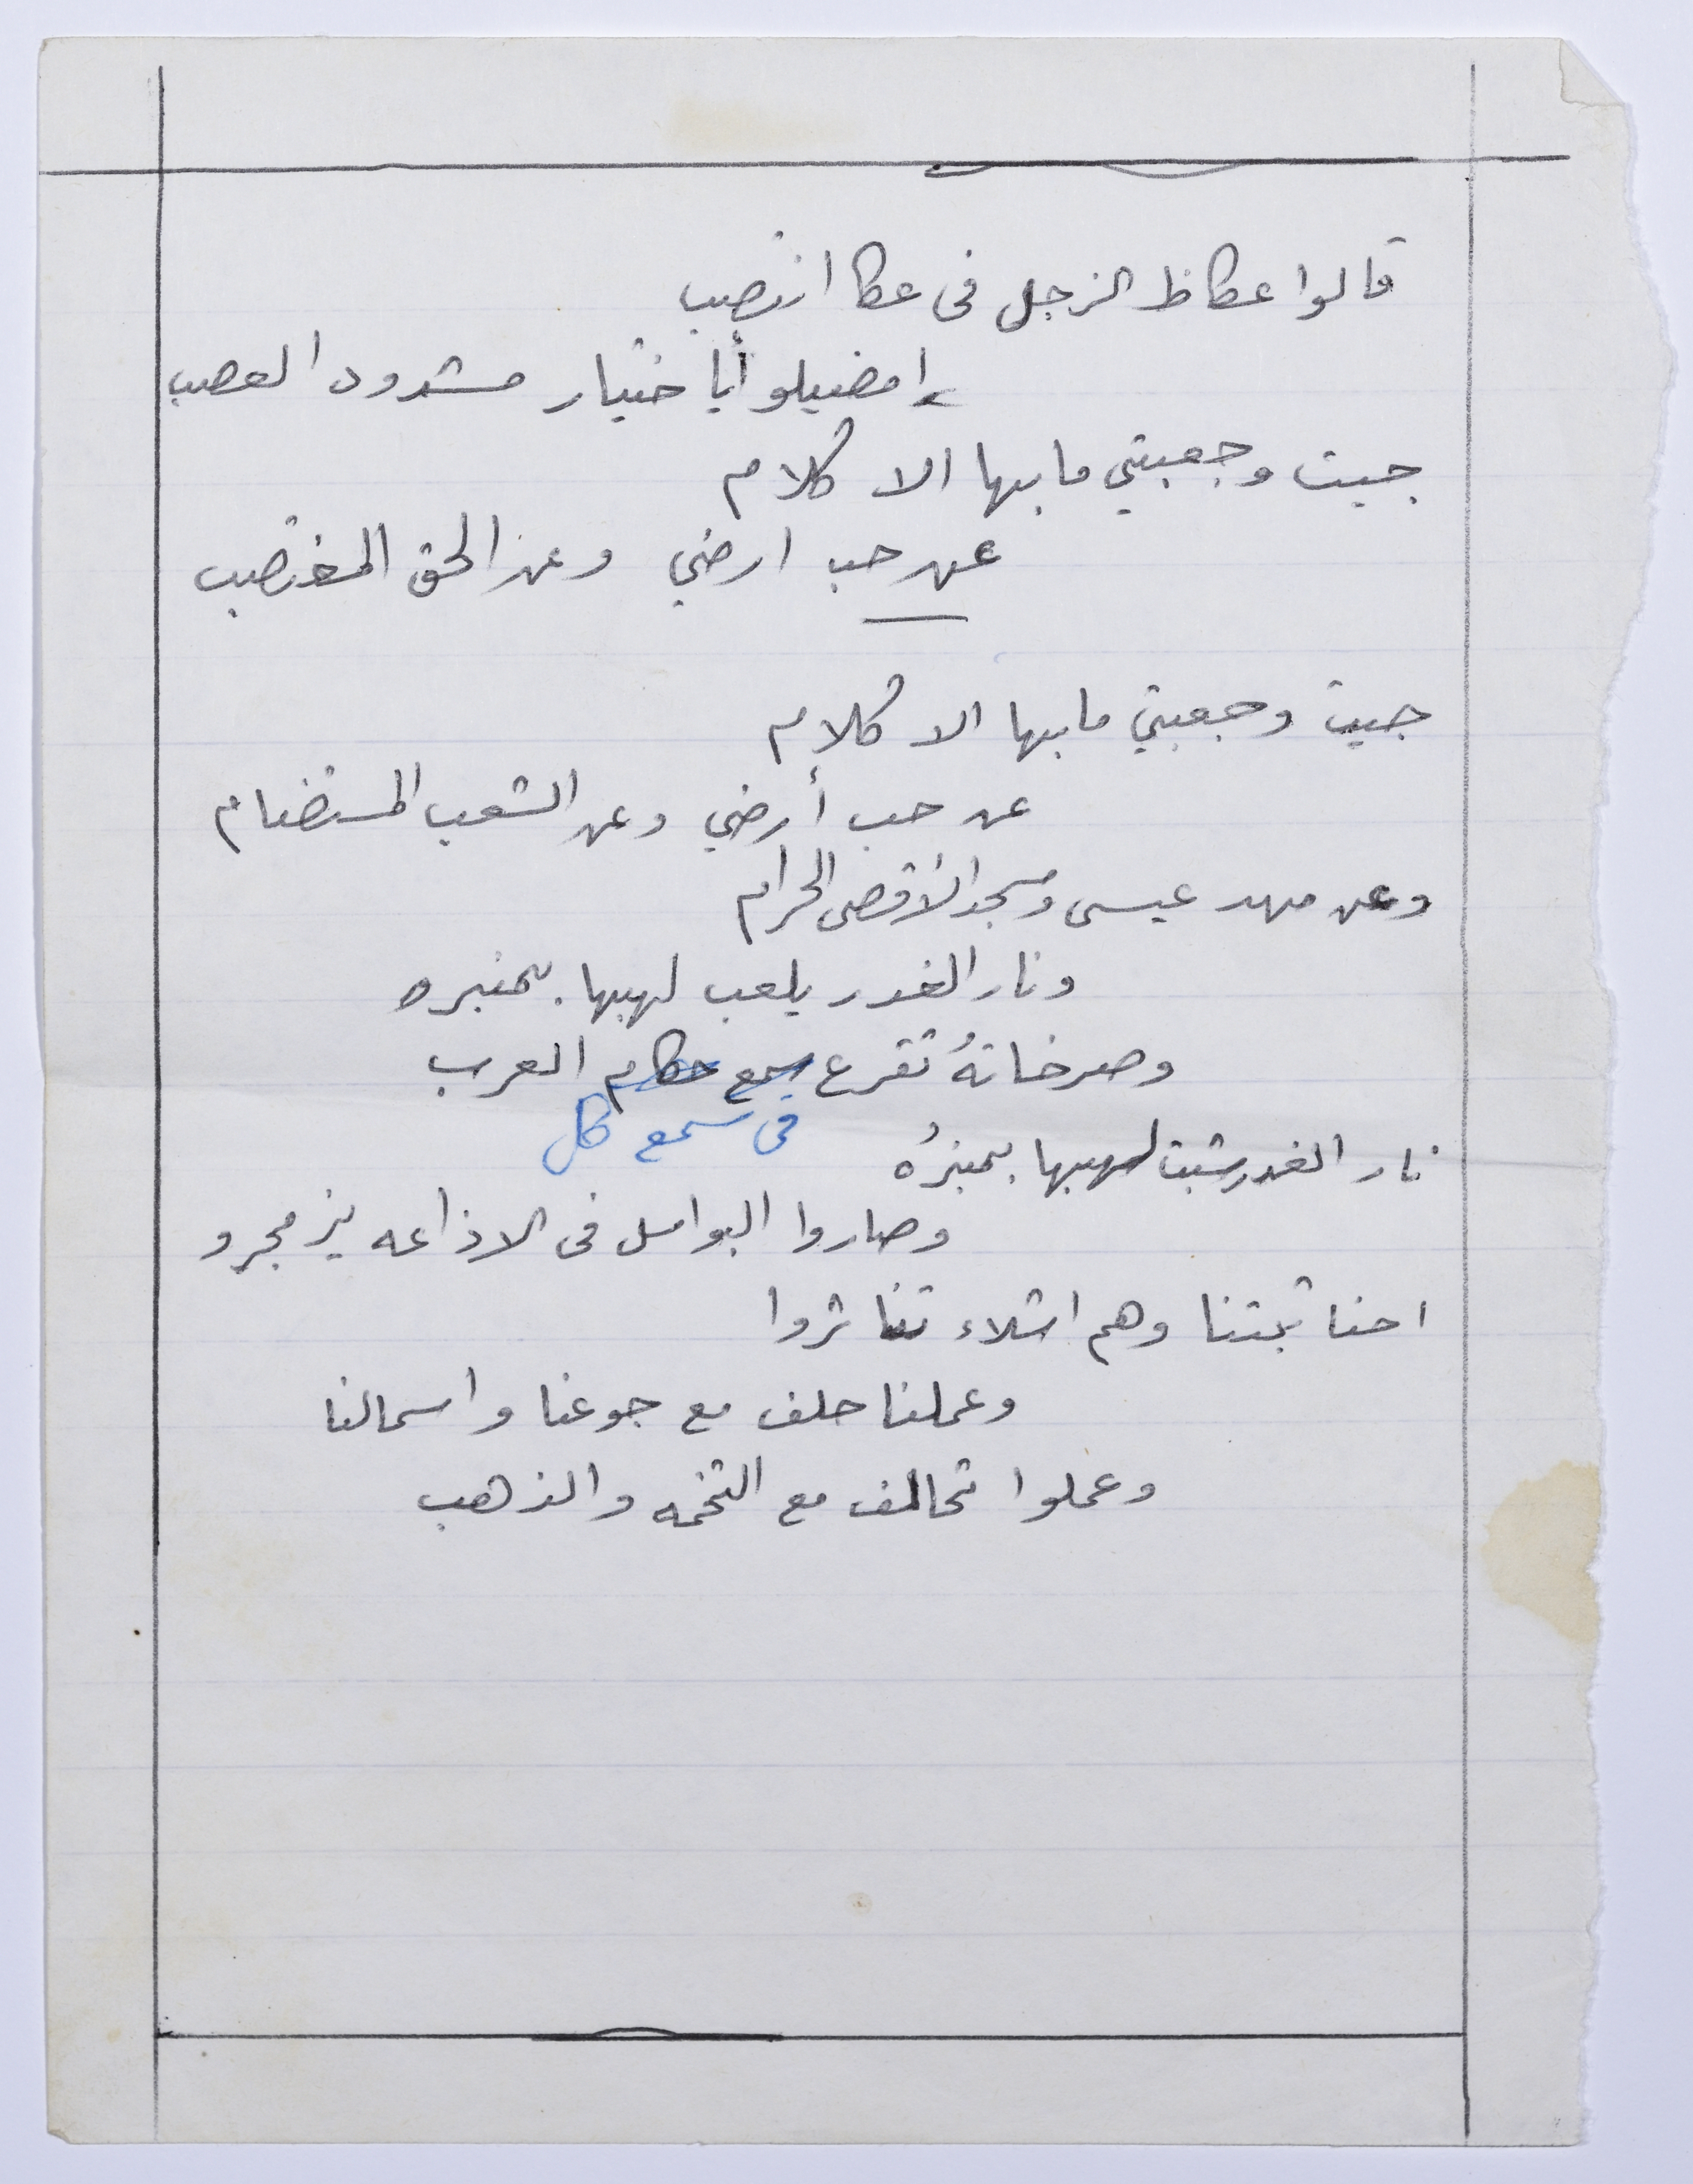 قالوا عكاظ الزجل فى عكا انتصب
امضيلو أيا ختيار مشدود العصب
جيت وجعبتي مابها الا كلام
عن حب ارضي وعن الحق المغتصب
جيت وجعبتي مابها الا كلام
عن حب أرضي وعن الشعب المستضام
وعن مهد عيسى ومسجد الأقصى الحرام
ونار الغدر يلعب لهيبها بمنبره
وصرخاتهُ تقرع سمع حكام العرب
فى سمع كل
نار الغدر شبت لهيبها بمنبرُه
وصاروا البواسل فى الاذاعه يزمجرو
احنا ثبتنا وهم اشلاء تناثروا
وعملنا حلف مع جوعنا واسمالنا
وعملوا تحالف مع التخمه والذهب